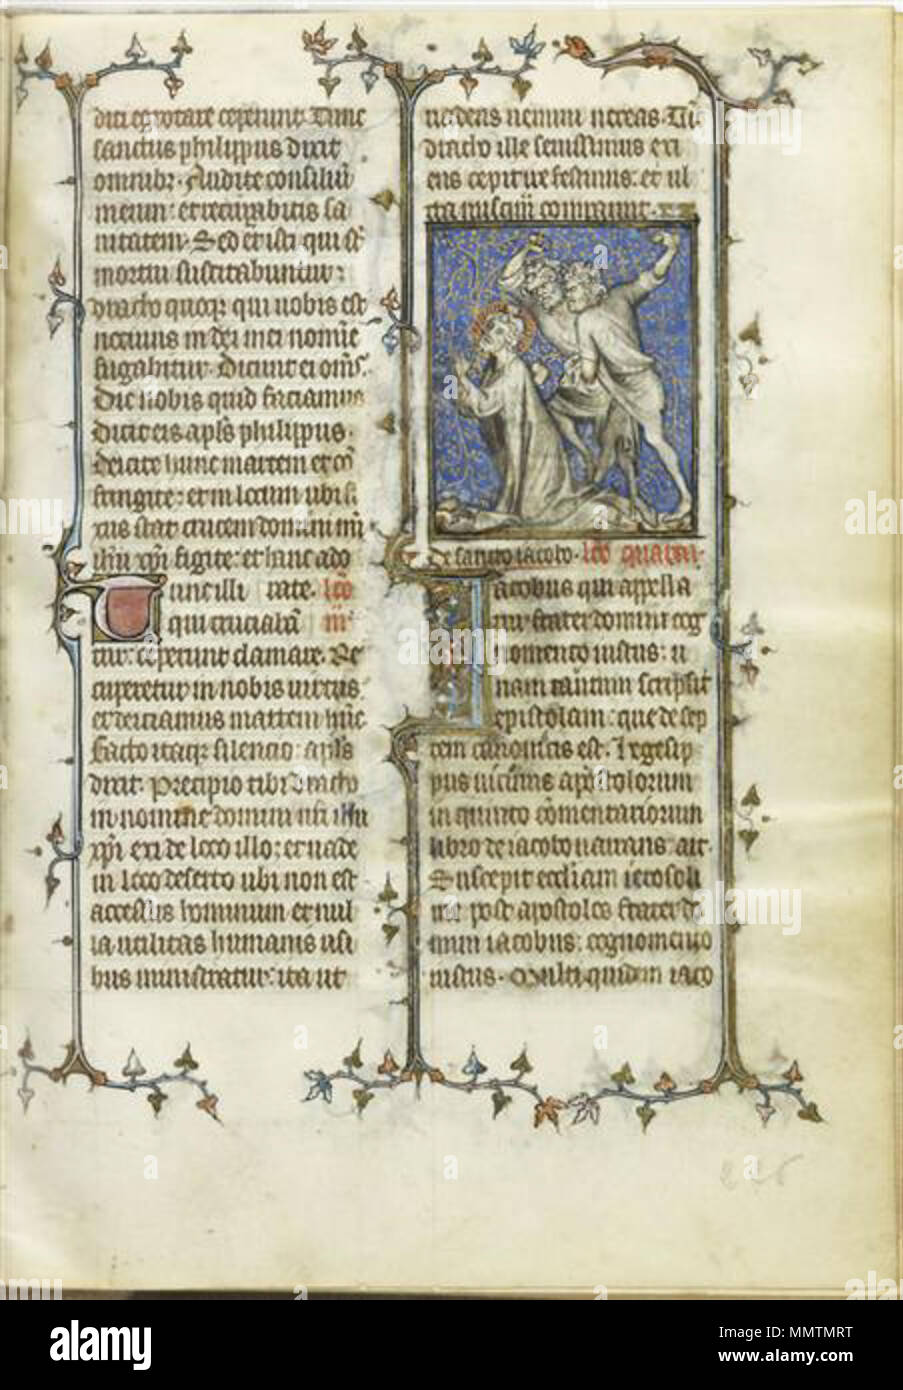 dici et rotare ceperunt. Tunc
sanctus philippus dixit
omnibz. Audite consiliū
meum: et recupabitis sa
nitatem. Sed et isti qui sūt
mortui suscitabuntur:
draco quoqz qui nobis est
nociuus in dei mei nomīe
fugabitur. Dicunt ei om̄s.
Dic nobis quid faciamus
dicit eis apls philippus.
deicite hunc martem et cō
fringite: et in locum ubi fi
xus stat crucem domini mī
ihu xpi figite: et hanc ado
Tunc illi rate. lc̄o
qui cruciabā
tur: ceperunt clamare. Re
cuperetur in nobis uirtus
et deiciamus martem hūc
facto itaqz silencio apls
dixit. Precipio tibi draco
in nomine domini nr̄i ihu
xpi exi de loco illo: et uade
in loco deserto ubi non est
accessus hominum et nul
la utilitas humanis usi
bus ministratur: ita ut
uadens nemini noceas. Tūc
draco ille seuissimus exi
ens cepit ire festinus: et ul
tra nusq̄m comparuit.
de sancto iacobo. lc̄o quarta.
Iacobus qui appella
tur frater domini cog
nomento iustus: u
nam tantum scripsit
epistolam: que de sep
tem canonicis est. Egesip
pus uicinus apostolorum
in quinto cōmentariorum
libro de iacobo narrans ait.
Suscepit eccliam ierosoli
me post apostolos frater do
mini iacobus: cognomento
iustus. Multi quidem iaco
alamy
Image ID: MMTMRT
www.alamy.com